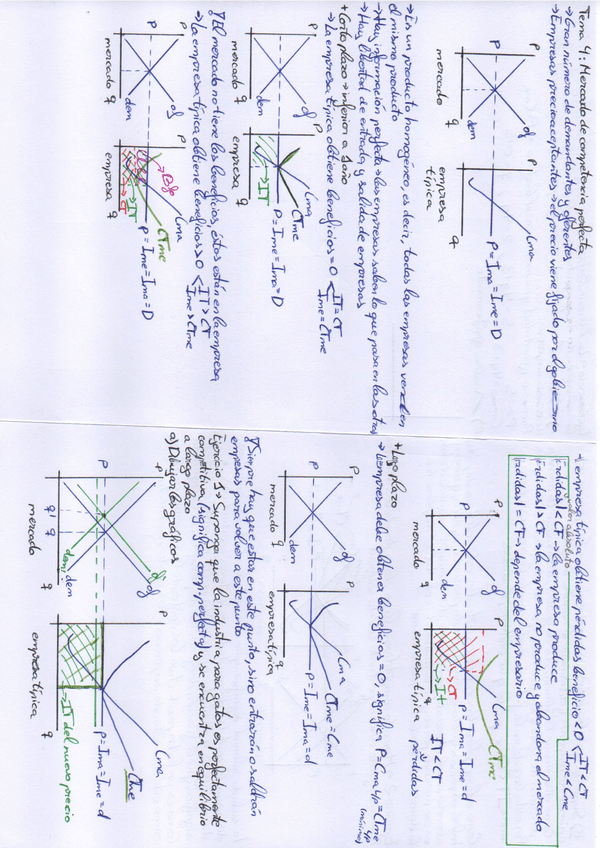 Tema 4: Mercado de competencia perfecta
→ Gran número de demandantes y oferentes
→ Empresas precioaceptantes → el precio viene fijado por el gobierno
P
of
P
dem
mercado
q
P
Cma
P = Ima = Ime = D
empresa
típica
q
→ Es un producto homogéneo, es decir, todas las empresas venden
el mismo producto
→ Hay información perfecta → las empresas saben lo que pasa en las otras
→ Hay libertad de entrada y salida de empresas
+ Corto plazo → inferior a 1 año
→ La empresa típica obtiene beneficios = 0
IT = CT
Ime = CTme
P
of
dem
mercado
q
P
Cma
CTme
P = Ime = Ima = D
→ IT
empresa
q
El mercado no tiene los beneficios, éstos están en la empresa
→ La empresa típica obtiene beneficios > 0
IT > CT
Ime > CTme
P
of
P
dem
mercado
q
P
Bfo
Cma
CTme
P = Ime = Ima = D
→ IT
→ CT
empresa
q
empresa típica obtiene pérdidas beneficio < 0
IT < CT
Ime < Cme
valor absoluto
rdidas | < CF → la empresa produce
rdidas | > CF → la empresa no produce y abandona el mercado
rdidas | = CF → depende del empresario
P
of
P
dem
mercado
q
P
Cma
CTme
P = Ima = Ime = d
→ CT
→ IT
empresa típica
q
IT < CT
pérdidas
+ Largo plazo
→ La empresa debe obtener beneficios = 0, significa P = Cma y P = CTme
(mínimos)
P
of
P
dem
mercado
q
P
Cma
CTme = Cme
P = Ime = Ima = d
empresa típica
q
Siempre hay que estar en este punto, sino entrarán o saldrán
empresas para volver a este punto
Ejercicio 1 → Suponga que la industria para gatos es perfectamente
competitiva, (significa comp. perfecta) y se encuentra en equilibrio
a largo plazo
a) Dibujar los gráficos
P
of
P
dem
dem
q
q
mercado
P
Cma
CTme
P = Ima = Ime = d
empresa típica
q
→ IT del nuevo precio